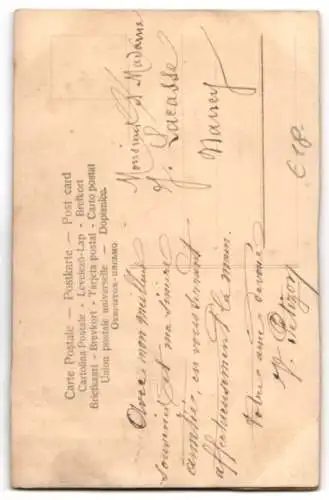 Carte Postale — Postkarte — Post card
Cartolina Postale - Levelező-Lap - Brefkort
Briefkaart - Brevkort - Tarjeta postal - Carto postal
Union postale universelle — Dopisnice.
Monsieur et Madame
Lacasse
Nancy
Avec mon meilleur
souvenir et ma sincère
amitié, en vous serrant
affectueusement la main.
Votre amie